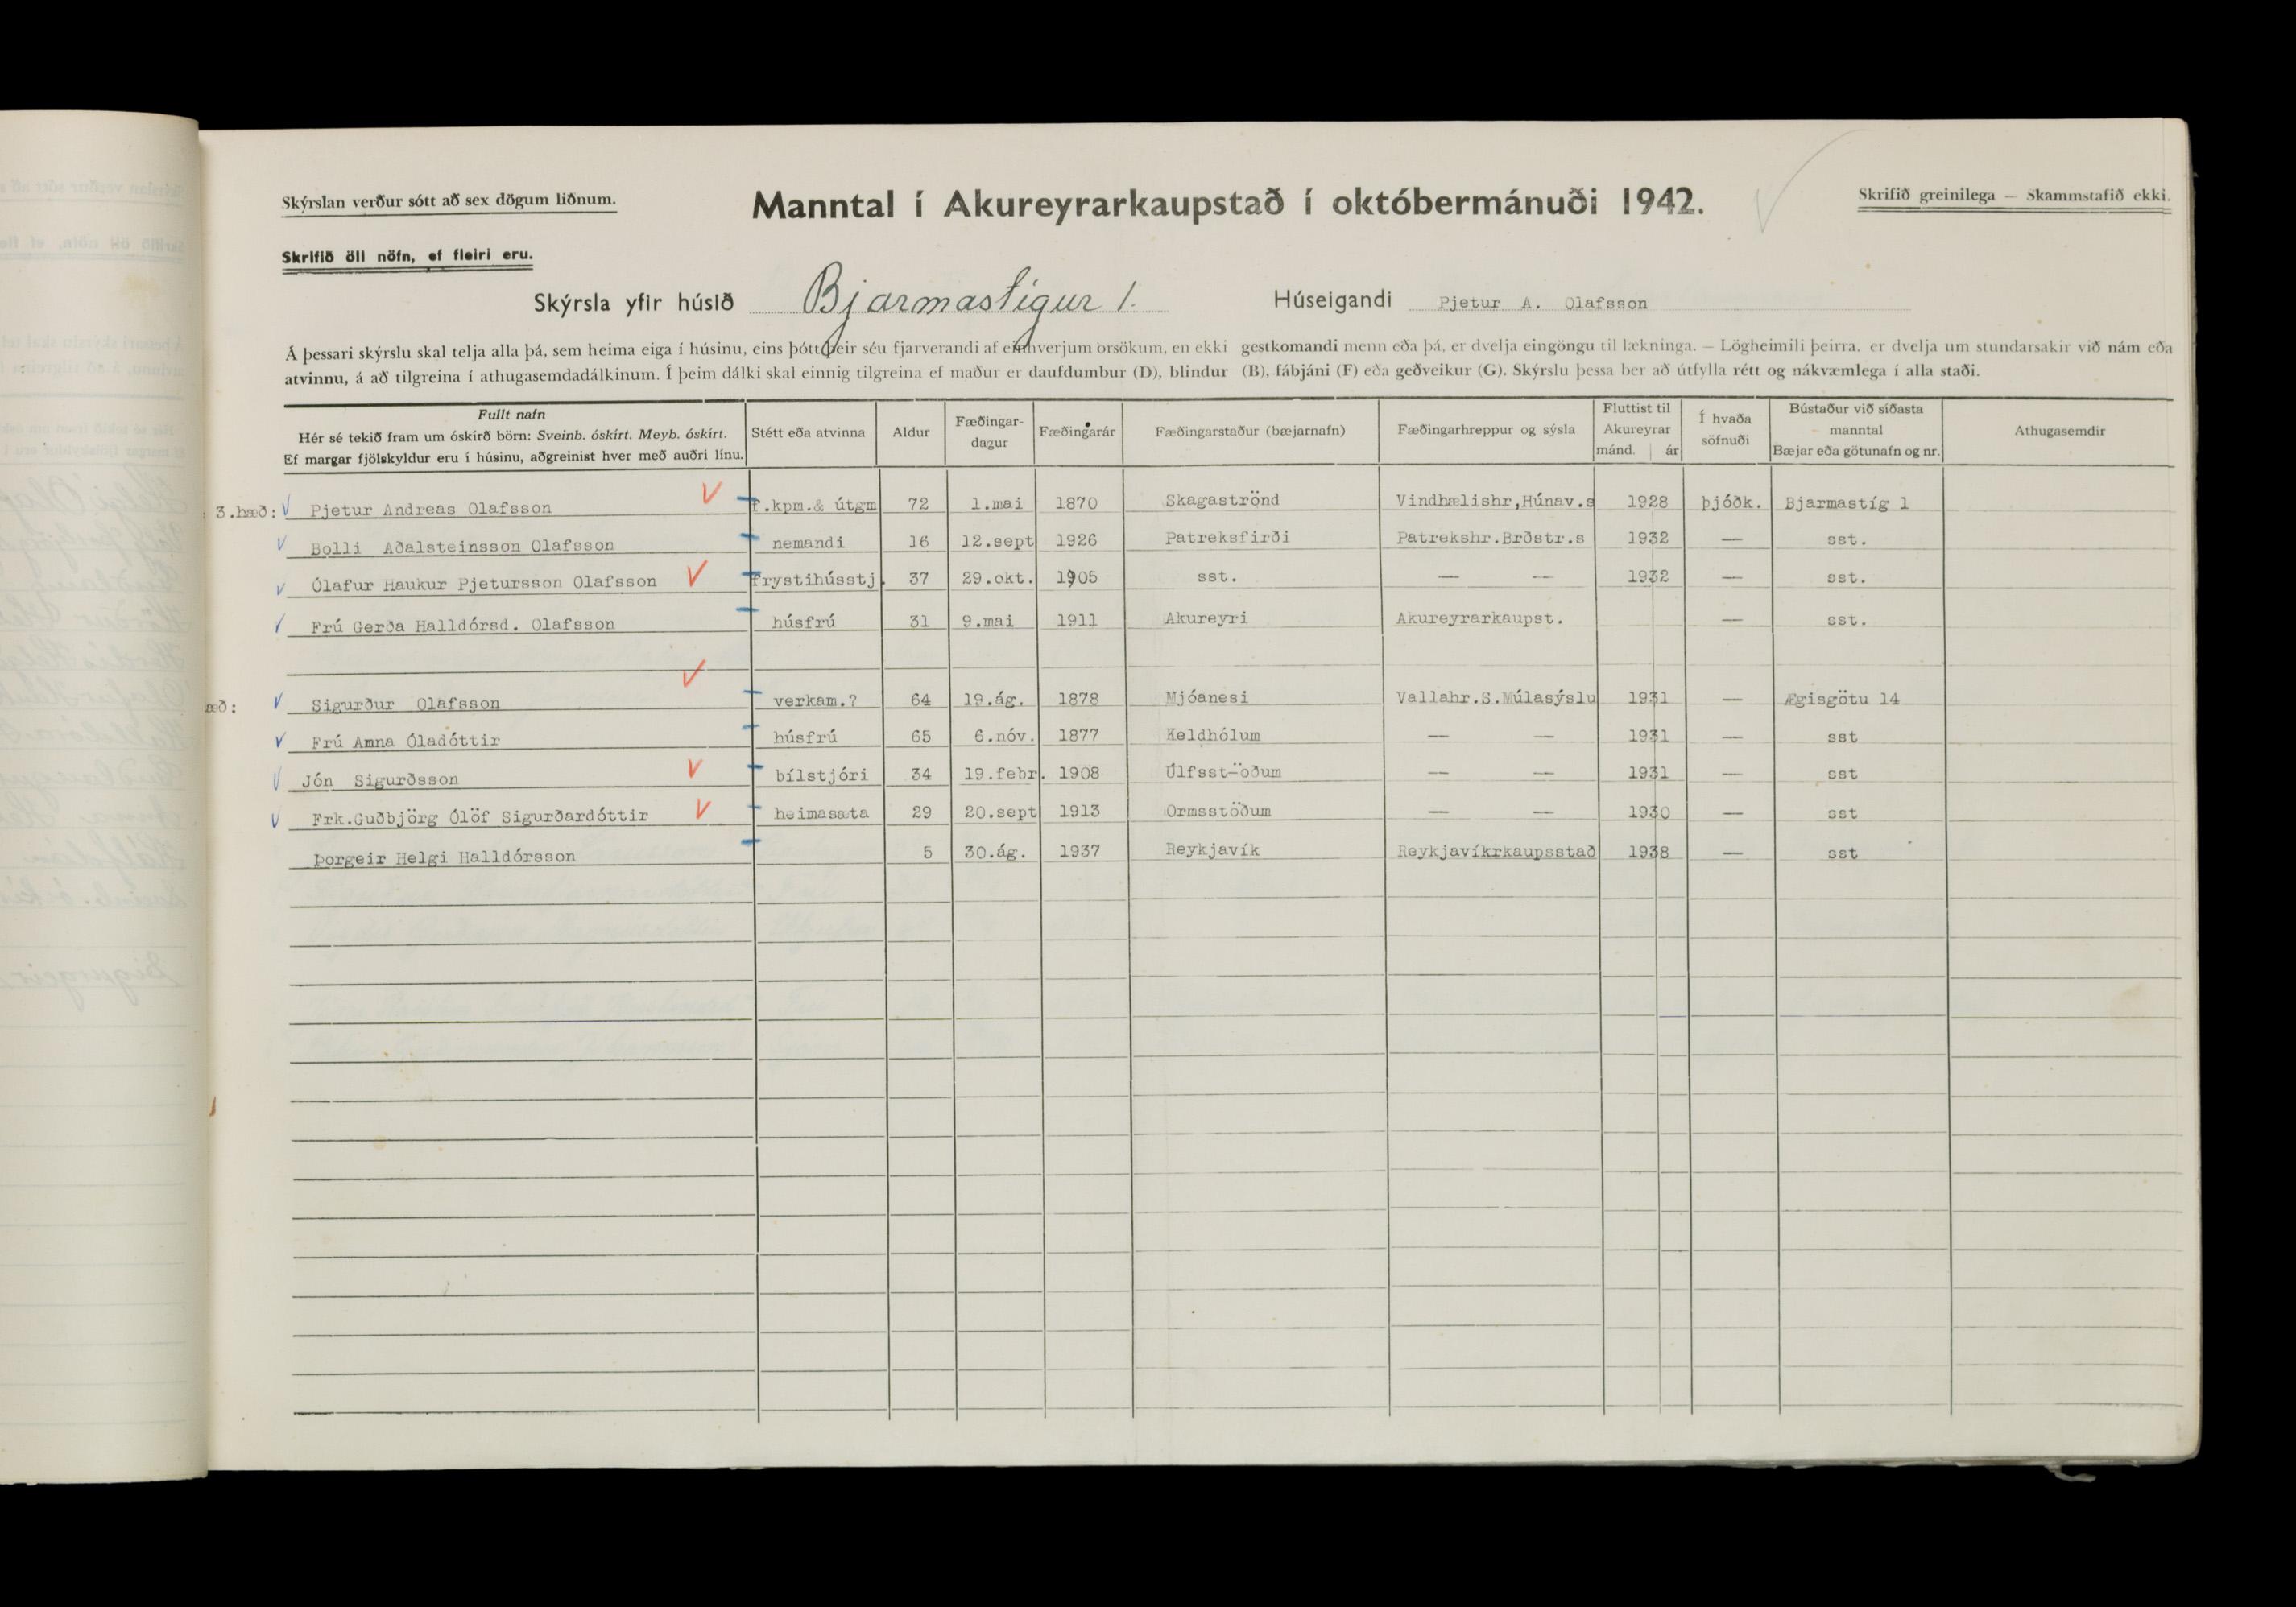 Skýrslan verður sótt að sex dögum liðnum.
Manntal í Akureyrarkaupstað í októbermánuði 1942.
Skrifið greinilega — Skammstafið ekki.
Skrifið öll nöfn, ef fleiri eru.
Skýrsla yfir húsið Bjarmastígur 1. Húseigandi Pjetur A. Olafsson
Á þessari skýrslu skal telja alla þá, sem heima eiga í húsinu, eins þótt þeir séu fjarverandi af einhverjum orsökum, en ekki gestkomandi menn eða þá, er dvelja eingöngu til lækninga. — Lögheimili þeirra, er dvelja um stundarsakir við nám eða
atvinnu, á að tilgreina í athugasemdadálkinum. Í þeim dálki skal einnig tilgreina ef maður er daufdumbur (D), blindur (B), fábjáni (F) eða geðveikur (G). Skýrslu þessa ber að útfylla rétt og nákvæmlega í alla staði.
Fullt nafn
Hér sé tekið fram um óskírð börn: Sveinb. óskírt. Meyb. óskírt.
Ef margar fjölskyldur eru í húsinu, aðgreinist hver með auðri línu.
Stétt eða atvinna
Aldur
Fæðingar-
dagur
Fæðingarár
Fæðingarstaður (bæjarnafn)
Fæðingarhreppur og sýsla
Fluttist til
Akureyrar
mánd. ár
Í hvaða
söfnuði
Bústaður við síðasta
manntal
Bæjar eða götunafn og nr.
Athugasemdir
3.hæð: Pjetur Andreas Olafsson f.kpm.& útgm 72 1.mai 1870 Skagaströnd Vindhælishr,Húnav.s 1928 þjóðk. Bjarmastíg 1
Bolli Aðalsteinsson Olafsson nemandi 16 12.sept 1926 Patreksfirði Patrekshr.Brðstr.s 1932 — sst.
Ólafur Haukur Pjetursson Olafsson frystihússtj. 37 29.okt. 1905 sst. — — 1932 — sst.
Frú Gerða Halldórsd. Olafsson húsfrú 31 9.mai 1911 Akureyri Akureyrarkaupst. — sst.
æð: Sigurður Olafsson verkam.? 64 19.ág. 1878 Mjóanesi Vallahr.S.Múlasýslu 1931 — Ægisgötu 14
Frú Amna Óladóttir húsfrú 65 6.nóv. 1877 Keldhólum — — 1931 — sst
Jón Sigurðsson bílstjóri 34 19.febr. 1908 Úlfsst-öðum — — 1931 — sst
Frk.Guðbjörg Ólöf Sigurðardóttir heimasæta 29 20.sept 1913 Ormsstöðum — — 1930 — sst
Þorgeir Helgi Halldórsson 5 30.ág. 1937 Reykjavík Reykjavíkrkaupsstað 1938 — sst